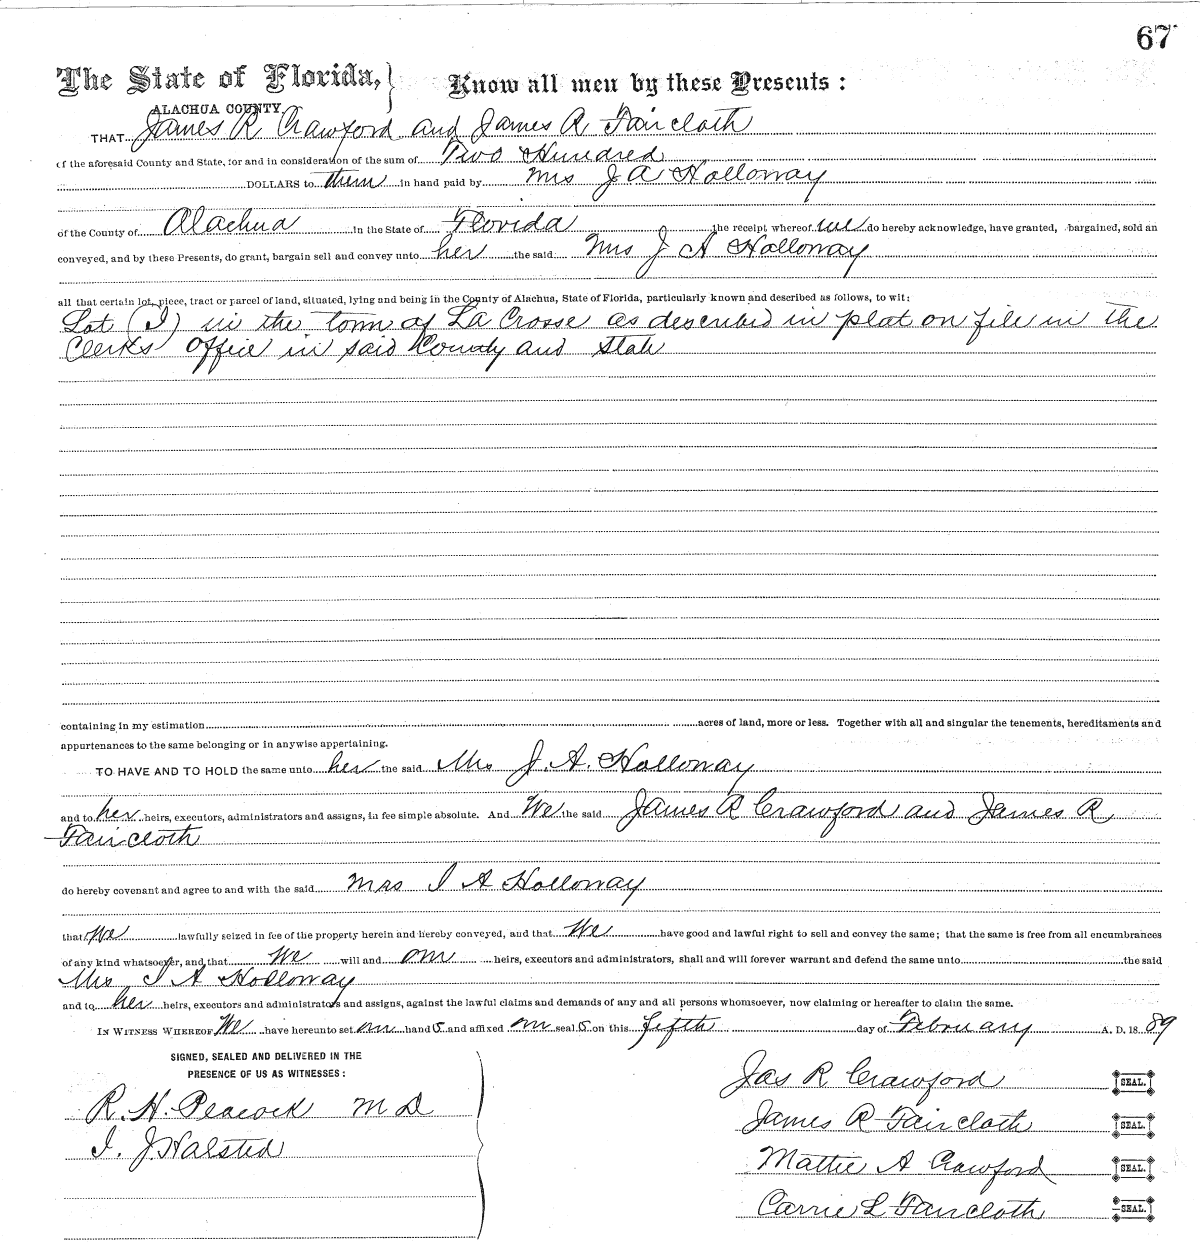 67
The State of Florida, } Know all men by these Presents :
ALACHUA COUNTY
THAT James R Crawford and James R Faircloth
of the aforesaid County and State, for and in consideration of the sum of Two Hundred
DOLLARS to them in hand paid by Mrs J A Holloway
of the County of Alachua in the State of Florida the receipt whereof we do hereby acknowledge, have granted, bargained, sold an
conveyed, and by these Presents, do grant, bargain sell and convey unto her the said Mrs J A Holloway
all that certain lot, piece, tract or parcel of land, situated, lying and being in the County of Alachua, State of Florida, particularly known and described as follows, to wit:
Lot (I) in the town of La Crosse as described in plat on file in the
Clerks office in said County and State
containing in my estimation acres of land, more or less. Together with all and singular the tenements, hereditaments and
appurtenances to the same belonging or in anywise appertaining.
TO HAVE AND TO HOLD the same unto her the said Mrs J. A. Holloway
and to her heirs, executors, administrators and assigns, in fee simple absolute. And We the said James R Crawford and James R
Faircloth
do hereby covenant and agree to and with the said Mrs J A Holloway
that We lawfully seized in fee of the property herein and hereby conveyed, and that We have good and lawful right to sell and convey the same; that the same is free from all encumbrances
of any kind whatsoever, and that We will and our heirs, executors and administrators, shall and will forever warrant and defend the same unto the said
Mrs J A Holloway
and to her heirs, executors and administrators and assigns, against the lawful claims and demands of any and all persons whomsoever, now claiming or hereafter to claim the same.
IN WITNESS WHEREOF We have hereunto set our hand s and affixed our seal s on this fifth day of February A. D. 18 89
SIGNED, SEALED AND DELIVERED IN THE
PRESENCE OF US AS WITNESSES:
R. H. Peacock M D
I. J. Halsted
Jas R Crawford SEAL.
James R Faircloth SEAL.
Mattie A Crawford SEAL.
Carrie L Faircloth SEAL.